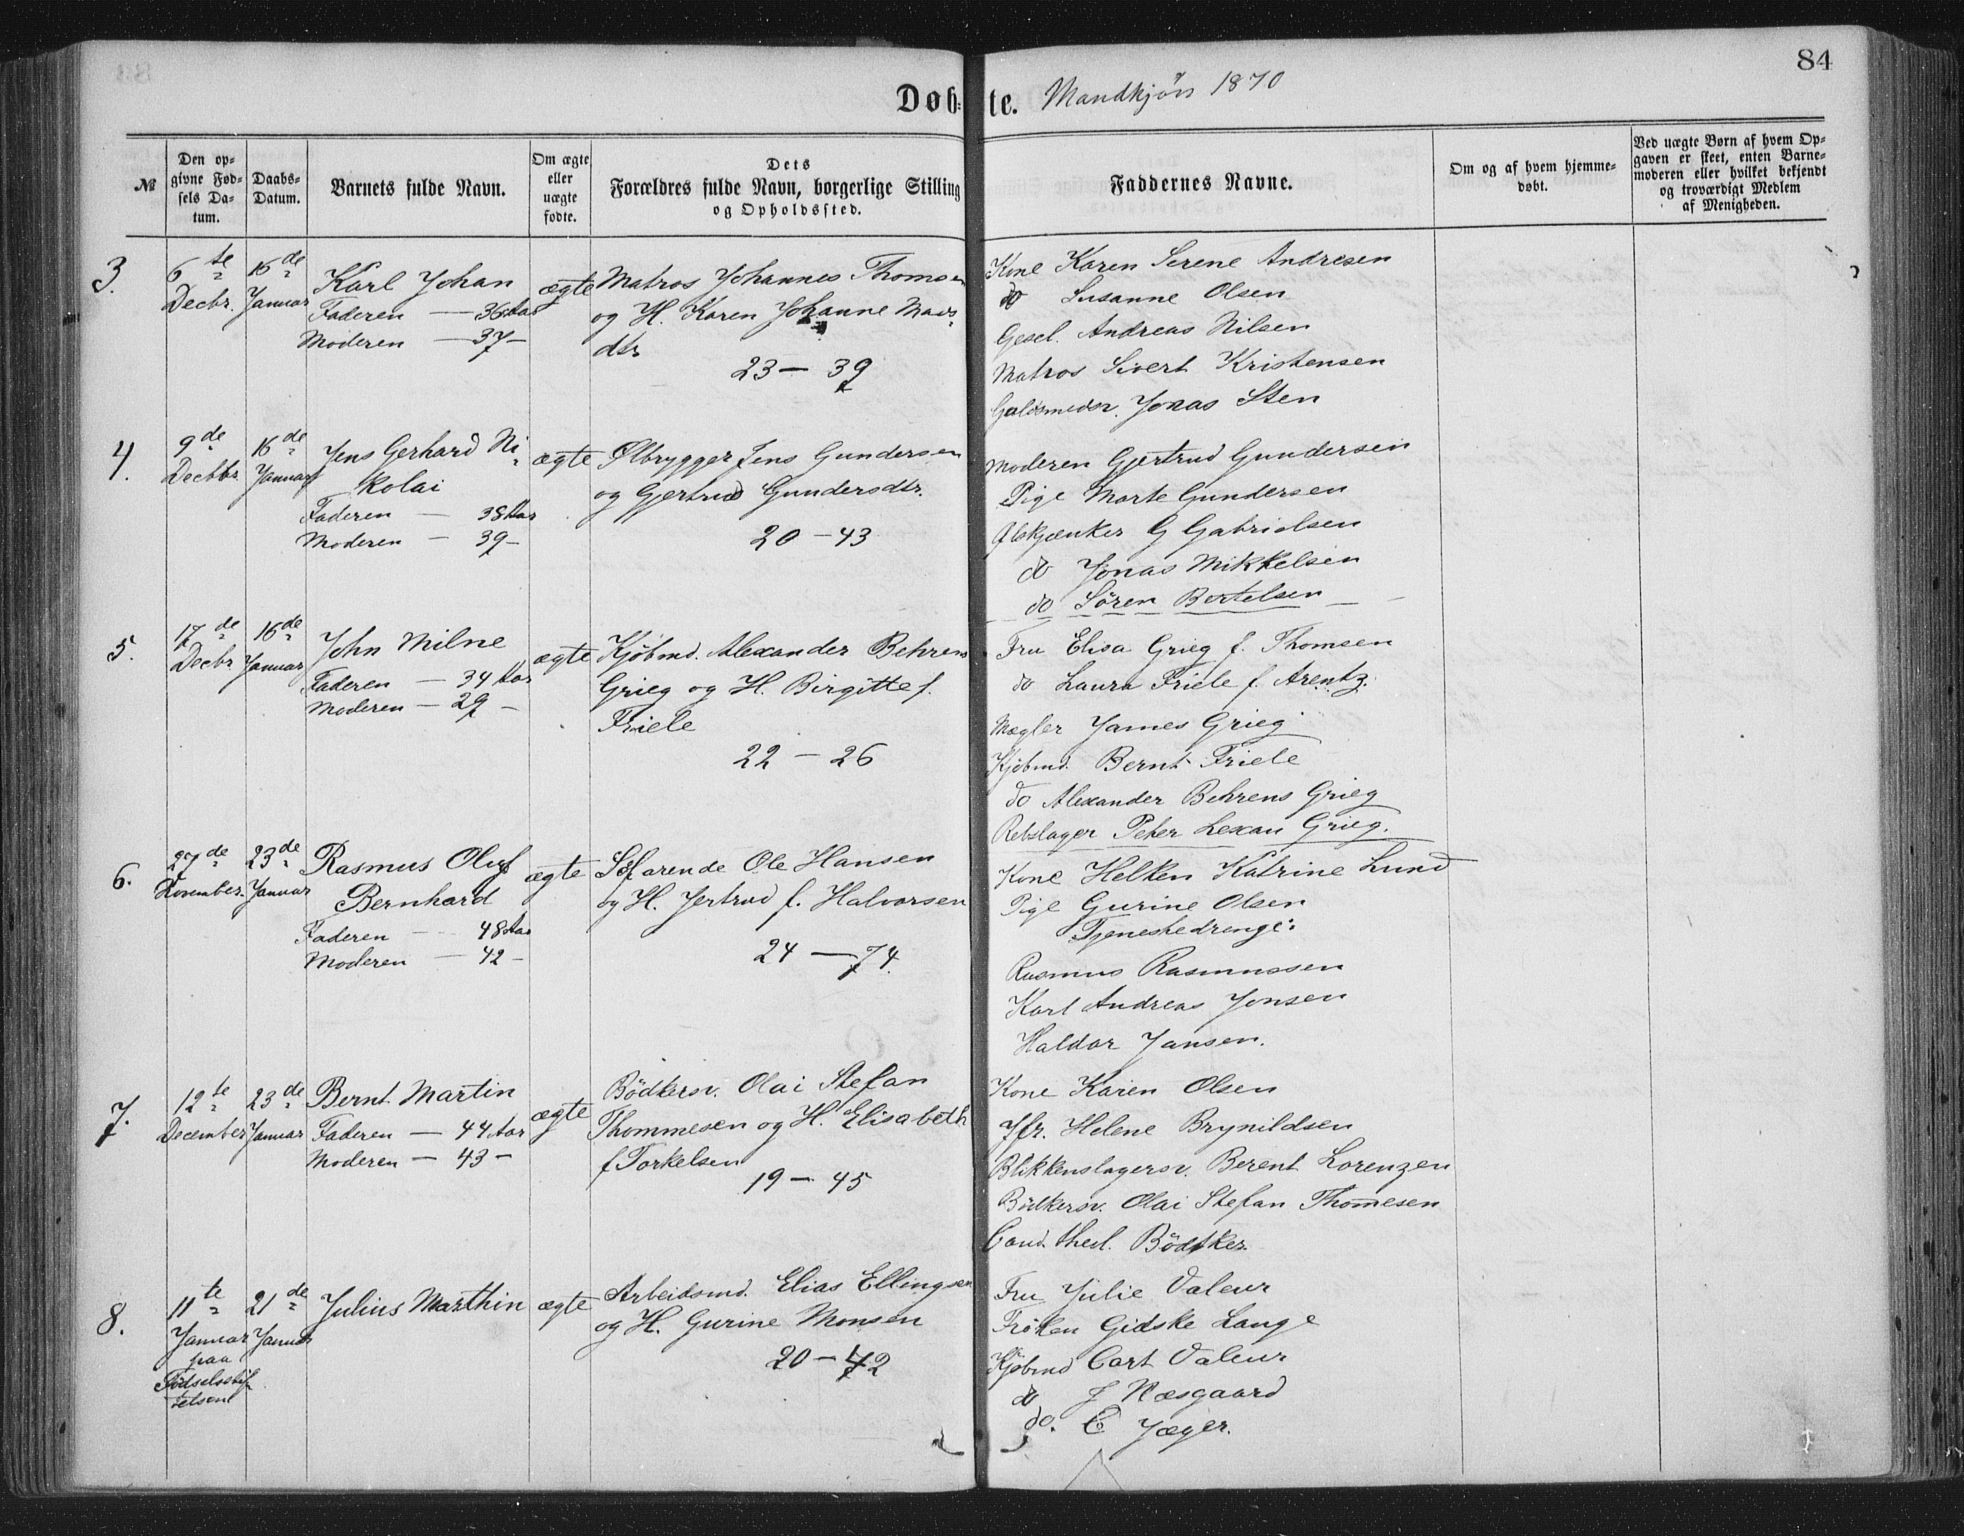 84
Døb-te. Mandkjön 1870
№
Den op-
givne Fød-
sels Da-
tum.
Daabs-
Datum.
Barnets fulde Navn.
Om ægte
eller
uægte
fødte.
Dets
Forældres fulde Navn, borgerlige Stilling
og Opholdssted.
Faddernes Navne.
Om og af hvem hjemme-
døbt.
Ved uægte Børn af hvem Op-
gaven er skeet, enten Barne-
moderen eller hvilket bekjendt
og troværdigt Medlem
af Menigheden.
3.
6te
Decbr.
16de
Januar
Karl Johan
Faderen — 36 Aar
Moderen — 37 —
ægte
Matros Johannes Thomsen
og H. Karen Johanne Mads-
dtr
23 — 39
Kone Karen Serene Andresen
do Susanne Olsen
Gesel. Andreas Nilsen
Matros Sivert Kristensen
Guldsmedsv. Jonas Sten
4.
9de
Decbbr.
16de
Januar
Jens Gerhard Ni-
kolai
Faderen — 38 Aar
Moderen — 39 —
ægte
Ølbrygger Jens Gundersen
og Gjertrud Gundersdtr.
20 — 43
Moderen Gjertrud Gundersen
Pige Marte Gundersen
Ølskjænker G Gabrielsen
do Jonas Mikkelsen
do Sören Bertelsen
5.
17de
Decbr
16de
Januar
John Milne
Faderen — 34 Aar
Moderen — 29 —
ægte
Kjöbmd. Alexander Behrens
Grieg og H. Birgitte f.
Friele
22 — 26
Fru Elisa Grieg f. Thomsen
do Laura Friele f. Arentz.
Mægler James Grieg
Kjöbmd. Bernt Friele
do Alexander Behrens Grieg
Rebslager Peter Lexau Grieg.
6.
27de
November.
23de
Januar
Rasmus Oluf
Bernhard
Faderen — 48 Aar
Moderen — 42 —
ægte
Söfarende Ole Hansen
og H. Jertrud f. Halvorsen
24 — 74.
Kone Helken Katrine Lund
Pige Gurine Olsen
Tjenestedrenge:
Rasmus Rasmussen
Karl Andreas Jonsen
Haldor Jansen.
7.
12te
December
23de
Januar
Bernt Martin
Faderen — 44 Aar
Moderen — 43 —
ægte
Bödkersv. Olai Stefan
Thommesen og H. Elisabeth
f Torkelsen
19 — 45
Kone Karen Olsen
Jfr. Helene Brynildsen
Blikkenslagersv. Berent Lorenzen
Bödkersv. Olai Stefan Thomesen
Cand. theol. Bödtker
8.
11te
Januar
paa
Födselsstif
telsen
21de
Januar
Julius Marthin
ægte
Arbeidsmd. Elias Ellingsen
og H. Gurine Monsen
20 — 72
Fru Julie Valeur
Fröken Gidske Lange
Kjöbmd Carl Valeur
do J Næsgaard
do. C Jæger.